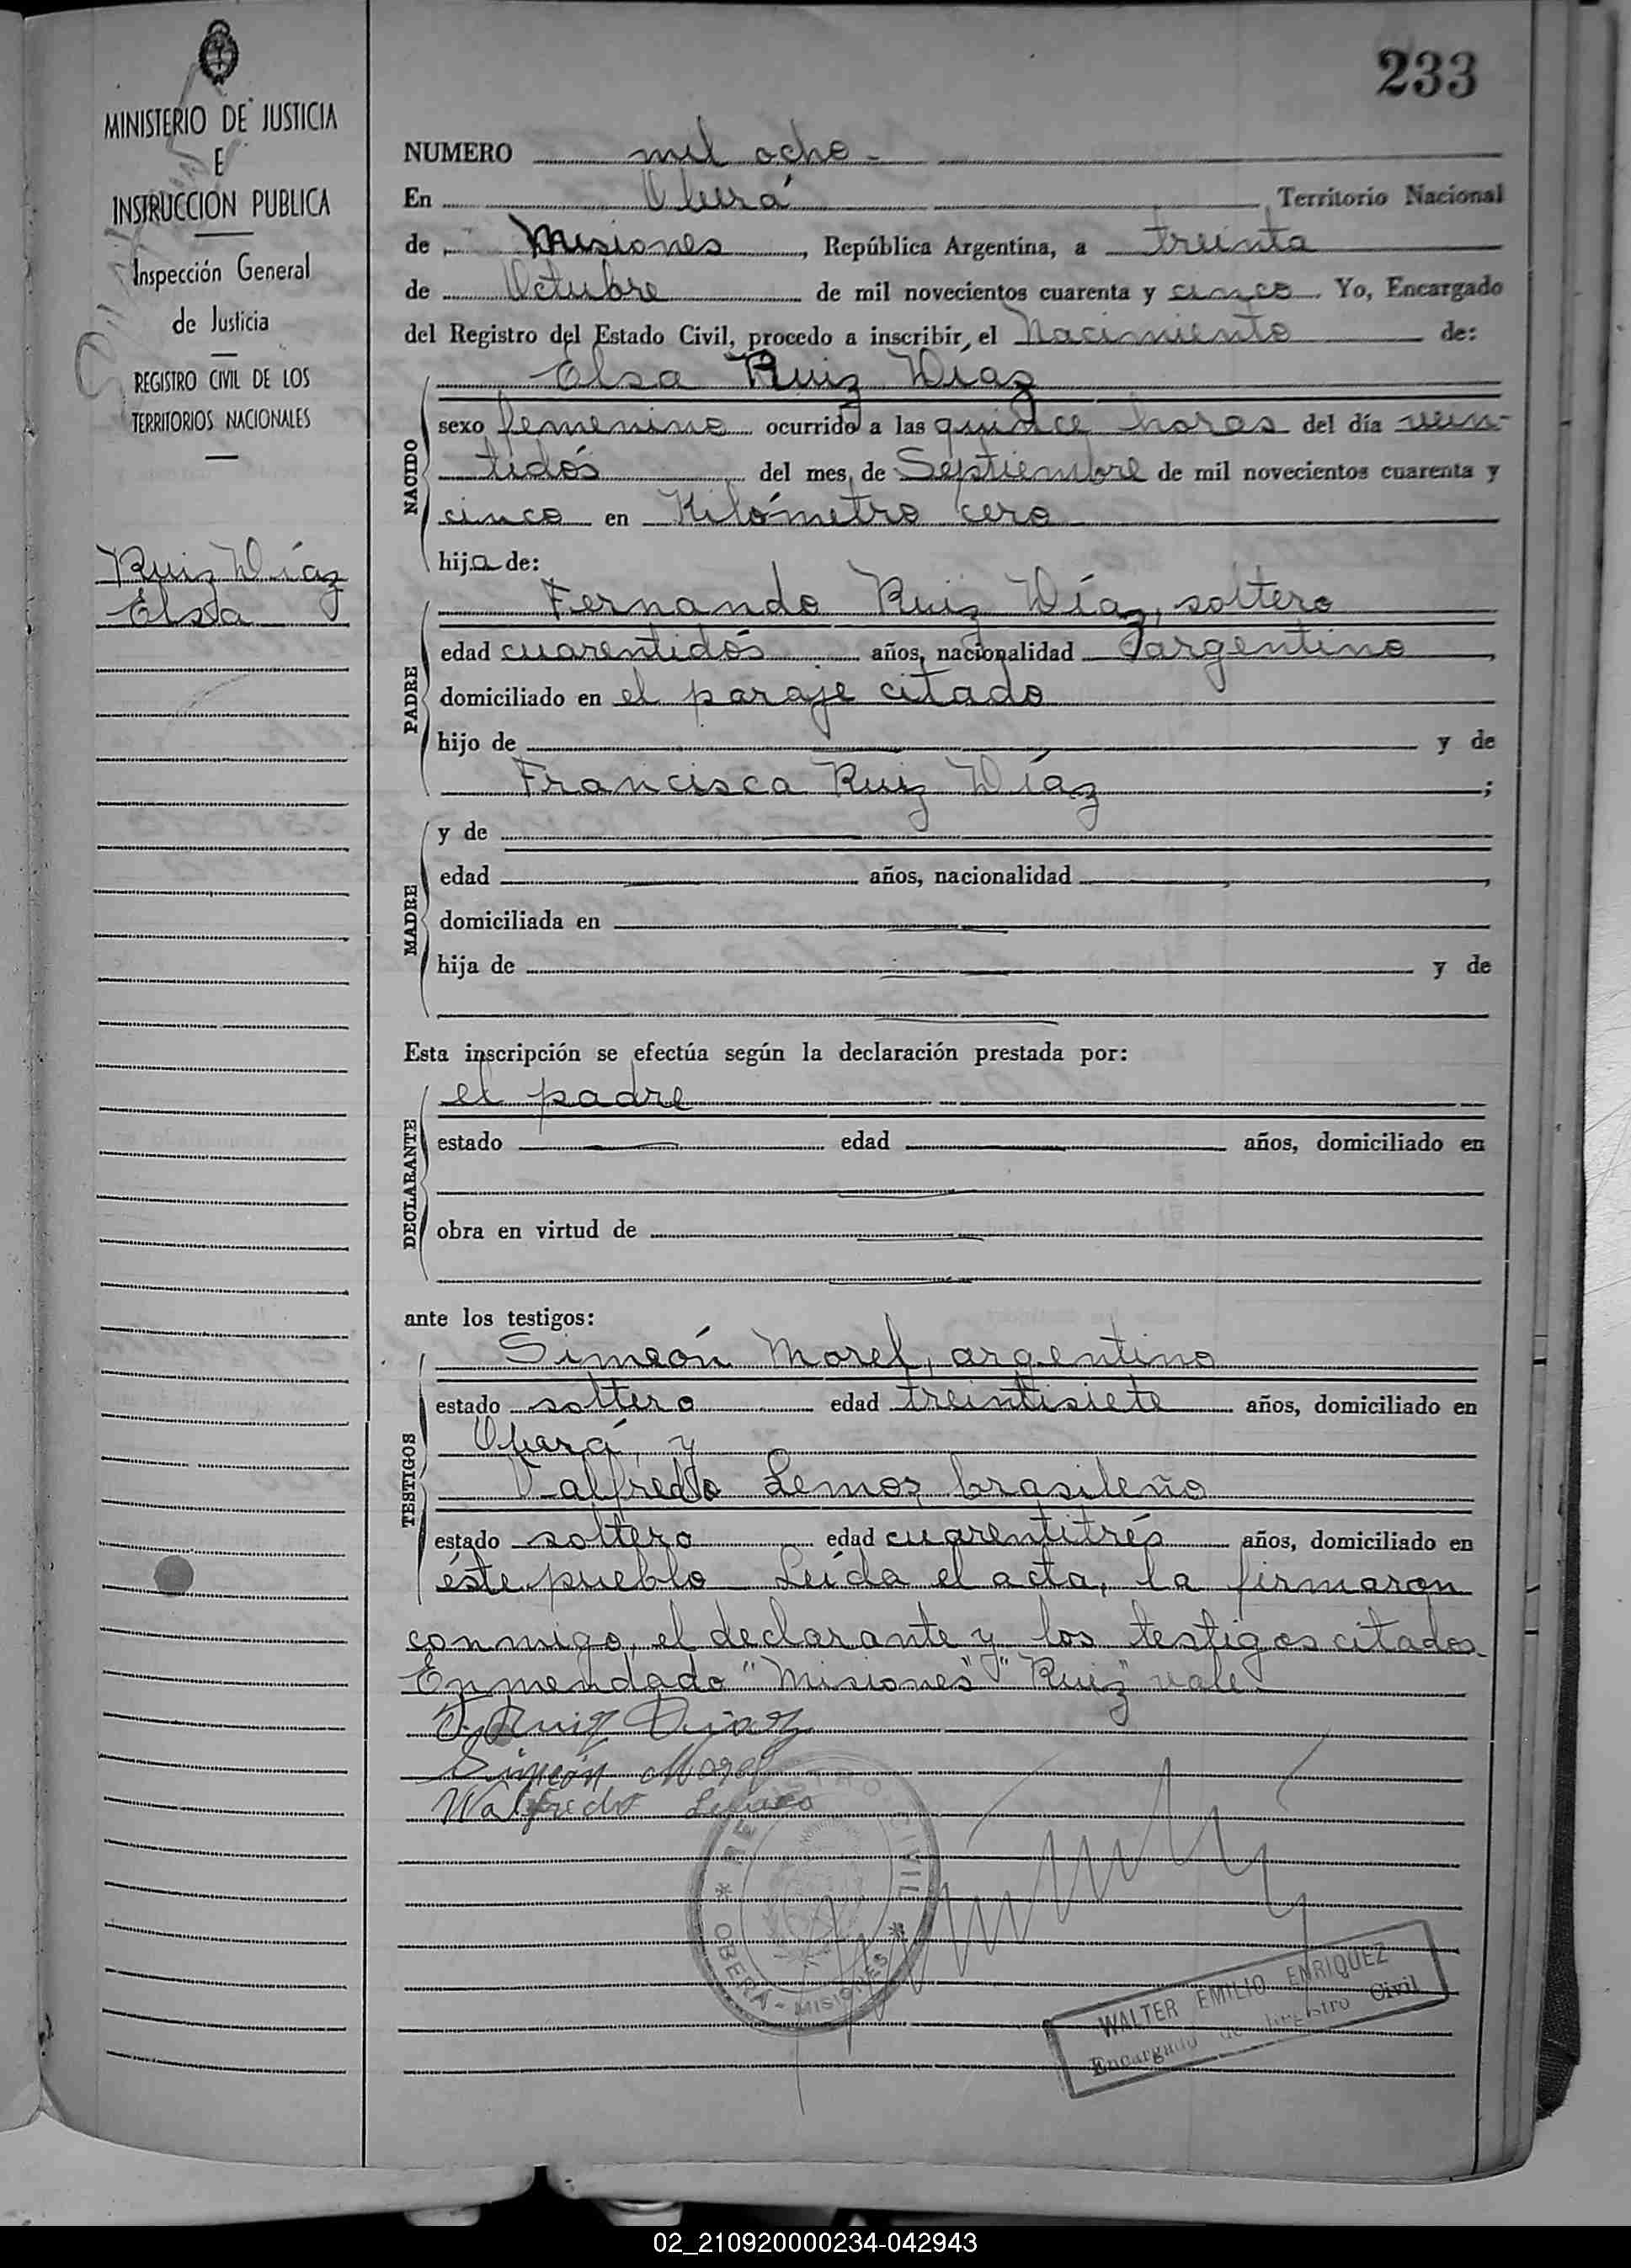 233
MINISTERIO DE JUSTICIA
E
INSTRUCCIÓN PUBLICA
Inspección General
de Justicia
REGISTRO CIVIL DE LOS
TERRITORIOS NACIONALES
Ruiz Díaz
Elsa
NUMERO mil ocho
En Oberá Territorio Nacional
de Misiones, República Argentina, a treinta
de Octubre de mil novecientos cuarenta y cinco. Yo, Encargado
del Registro del Estado Civil, procedo a inscribir, el Nacimiento de:
NACIDO
Elsa Ruiz Díaz
sexo femenino ocurrido a las quince horas del día vein-
tidós del mes, de Septiembre de mil novecientos cuarenta y
cinco en Kilómetro cero
hija de:
PADRE
Fernando Ruiz Díaz, soltero
edad cuarentidós años, nacionalidad argentino,
domiciliado en el paraje citado
hijo de y de
Francisca Ruiz Díaz;
MADRE
y de
edad años, nacionalidad ,
domiciliada en
hija de y de
Esta inscripción se efectúa según la declaración prestada por:
DECLARANTE
el padre
estado edad años, domiciliado en
obra en virtud de
ante los testigos:
TESTIGOS
Simeón Morel, argentino
estado soltero edad treintisiete años, domiciliado en
Oberá, y
Valfredo Lemos, brasileño
estado soltero edad cuarentitrés años, domiciliado en
éste pueblo Leída el acta, la firmaron
conmigo, el declarante y los testigos citados.
Enmendado "Misiones" "Ruiz" vale.
F. Ruiz Diaz
Simeón Morel
Walfredo
REGISTRO CIVIL
OBERÁ - MISIONES
WALTER EMILIO ENRIQUEZ
Encargado de Registro Civil
02_210920000234-042943